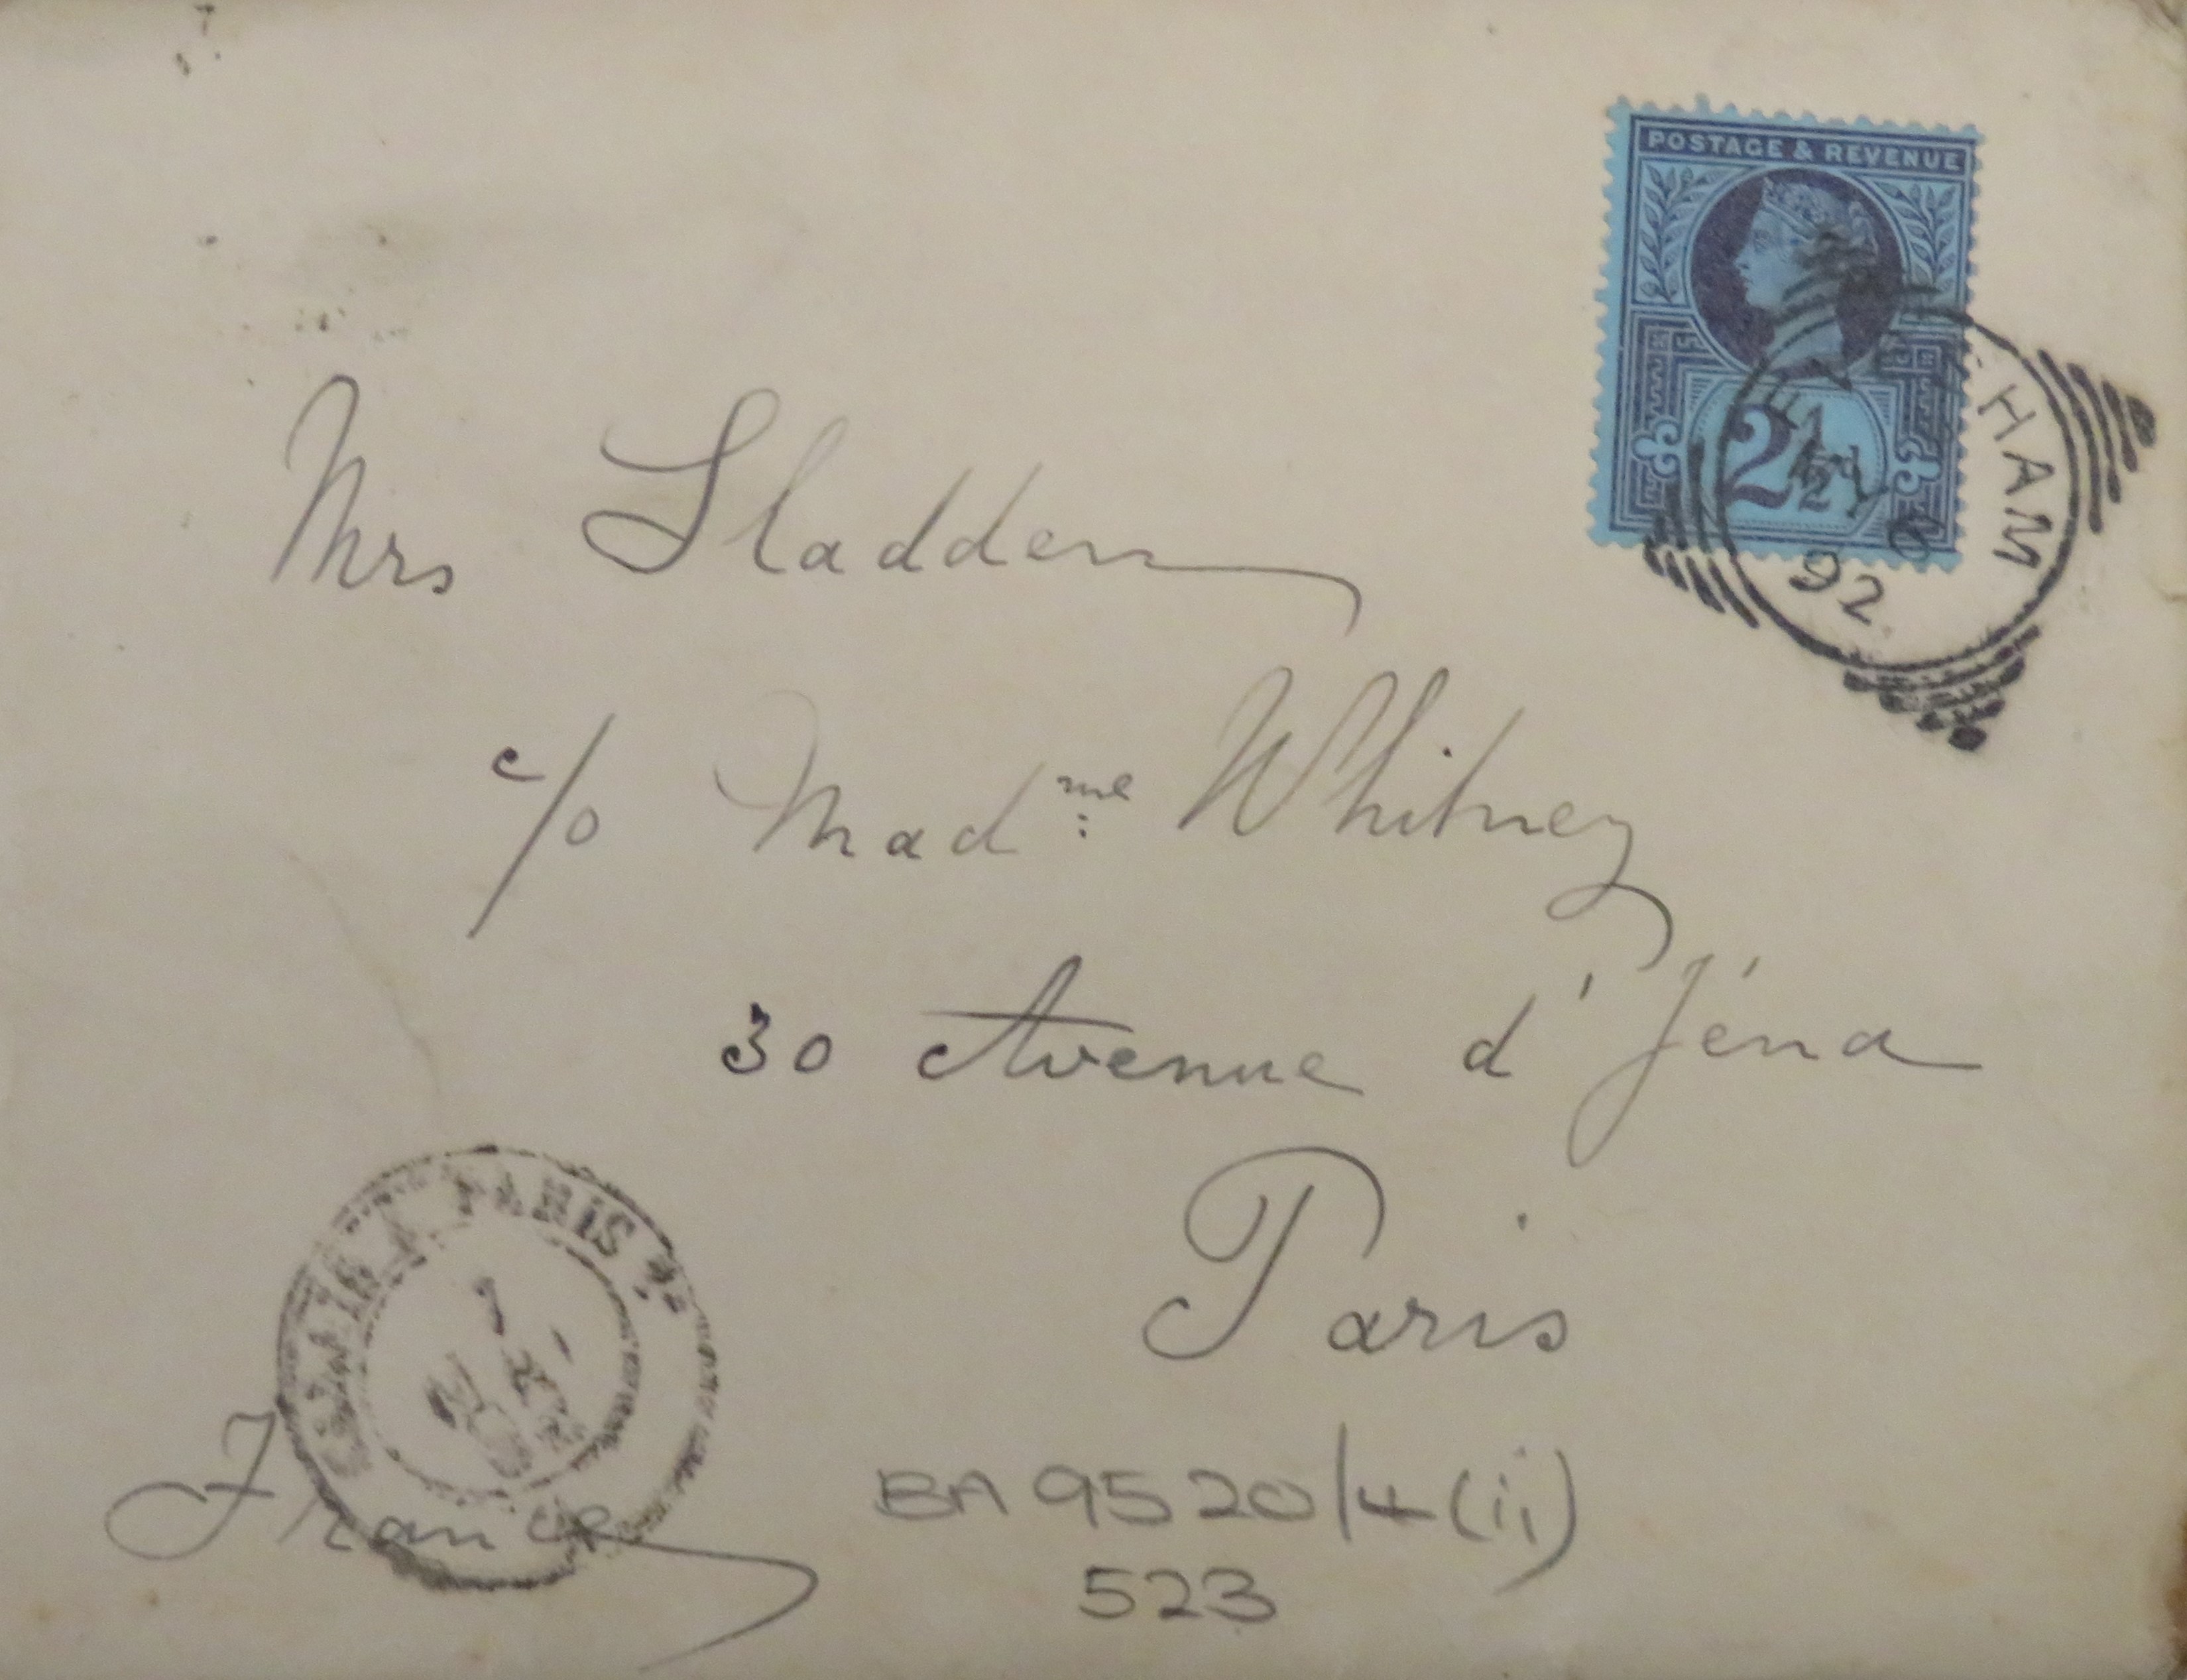 POSTAGE & REVENUE
2½d
HAM
92
Mrs Sladden
c/o Mad:me Whitney
30 Avenue d'Jéna
Paris
PARIS
France
BA 9520/4(ii)
523